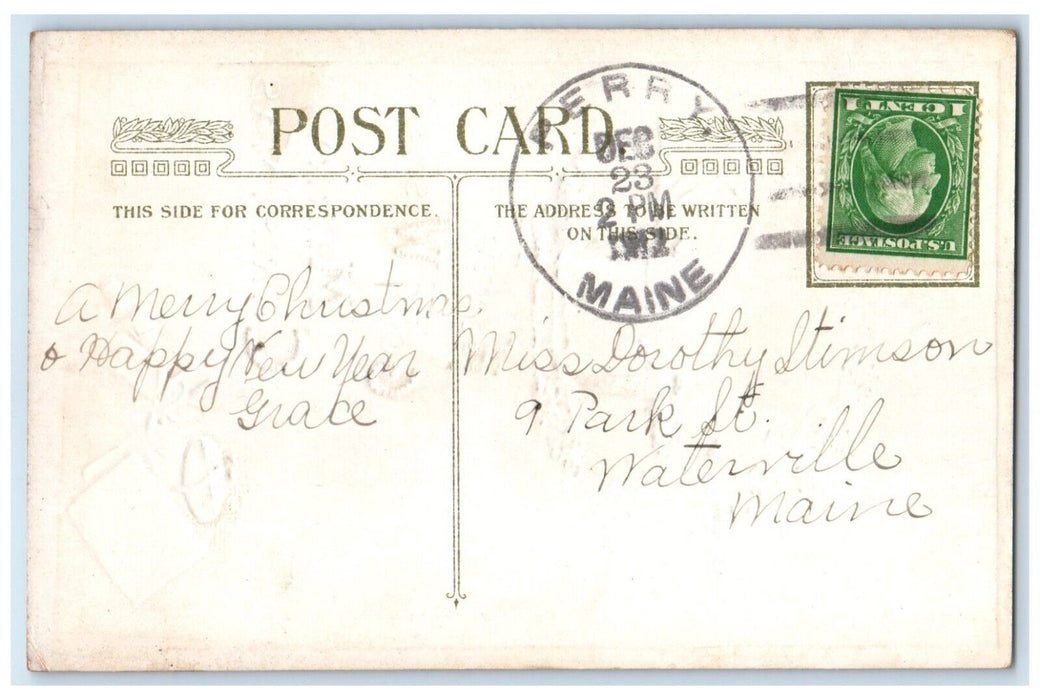 POST CARD
PERRY,
DEC
23
2 PM
MAINE
1 CENT 1
U.S. POSTAGE
THIS SIDE FOR CORRESPONDENCE.
THE ADDRESS TO BE WRITTEN
ON THIS SIDE.
A Merry Christmas
& Happy New Year
Grace
Miss Dorothy Stimson
9 Park St.
Waterville
Maine